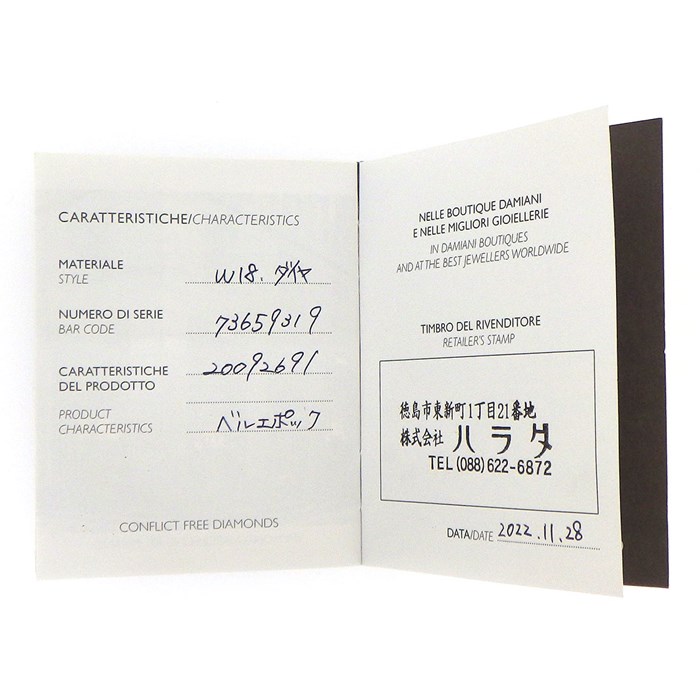 CARATTERISTICHE/CHARACTERISTICS
MATERIALE
STYLE
W18. ダイヤ
NUMERO DI SERIE
BAR CODE
73659319
CARATTERISTICHE
DEL PRODOTTO
20092691
PRODUCT
CHARACTERISTICS
ベルエポック
CONFLICT FREE DIAMONDS
NELLE BOUTIQUE DAMIANI
E NELLE MIGLIORI GIOIELLERIE
IN DAMIANI BOUTIQUES
AND AT THE BEST JEWELLERS WORLDWIDE
TIMBRO DEL RIVENDITORE
RETAILER'S STAMP
徳島市東新町1丁目21番地
株式会社 ハラダ
TEL (088) 622-6872
DATA/DATE 2022.11.28